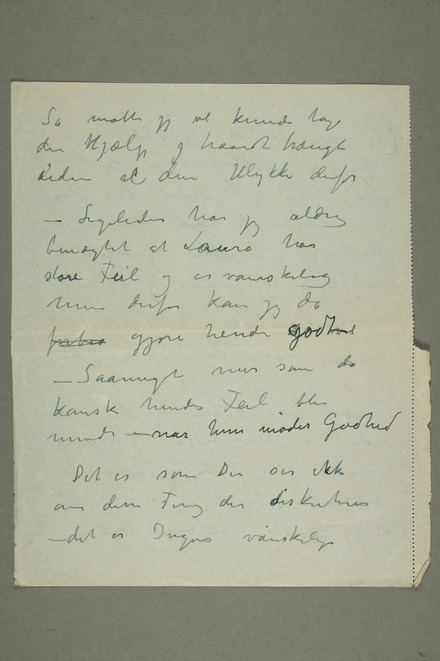 Så måtte jeg vel kunde tage
den Hjælp jeg haardt trængte
siden al den Ulykke derfor
— Ligeledes har jeg aldrig
benægtet at Laura har
store Feil og er vanskelig
men derfor kan jeg da
gjøre hende godt
— Saameget mer som da
kanske hendes Feil blir
mindre — når hun møder Godhed
Det er som De sier ikke
om disse Ting der diskuteres
— det er Ingers vanskelige